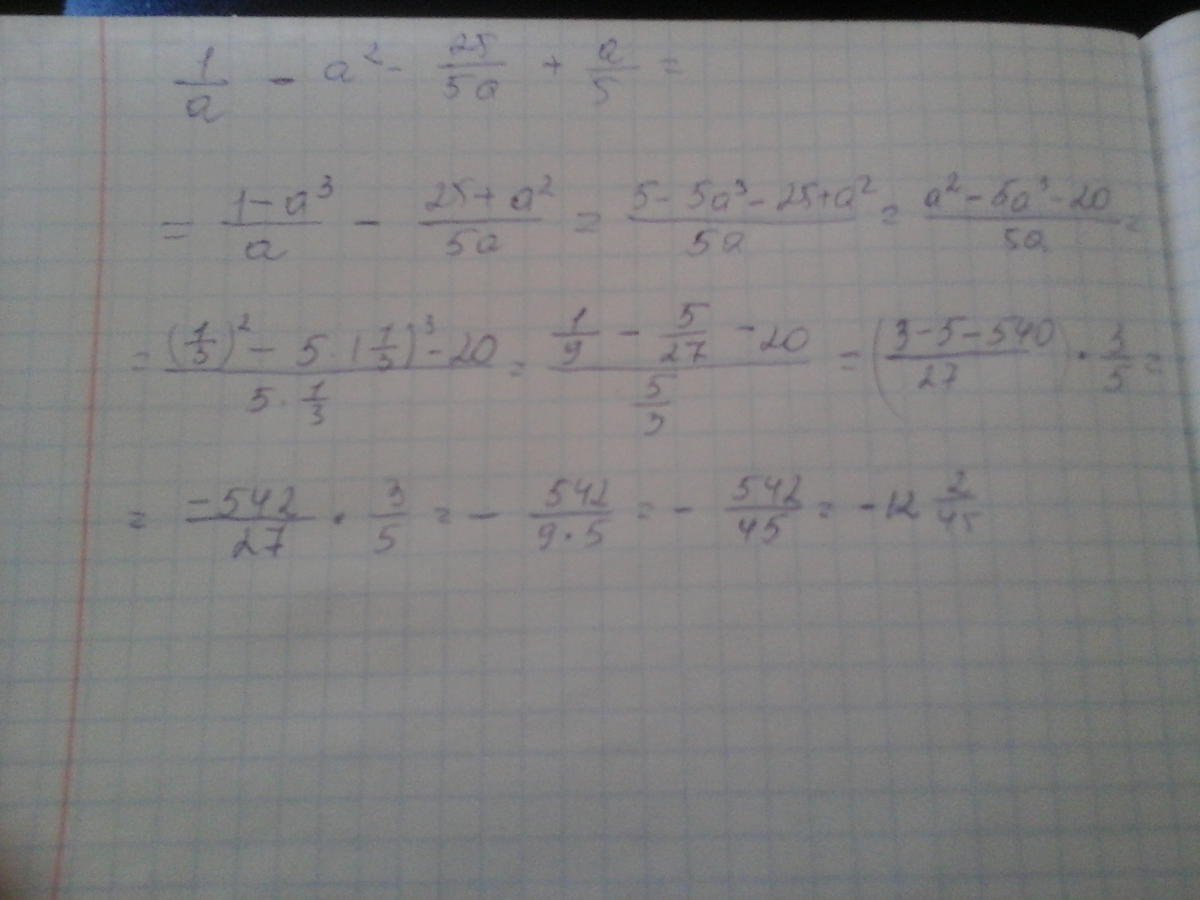 1/a - a² - 25/5a + a/5 =
= (1-a³)/a - (25+a²)/5a = (5-5a³-25+a²)/5a = (a²-5a³-20)/5a =
= ((1/3)² - 5·(1/3)³ - 20)/(5·1/3) = (1/9 - 5/27 - 20)/(5/3) = ((3-5-540)/27)·3/5 =
= -542/27 · 3/5 = - 542/(9·5) = - 542/45 = -12 2/45